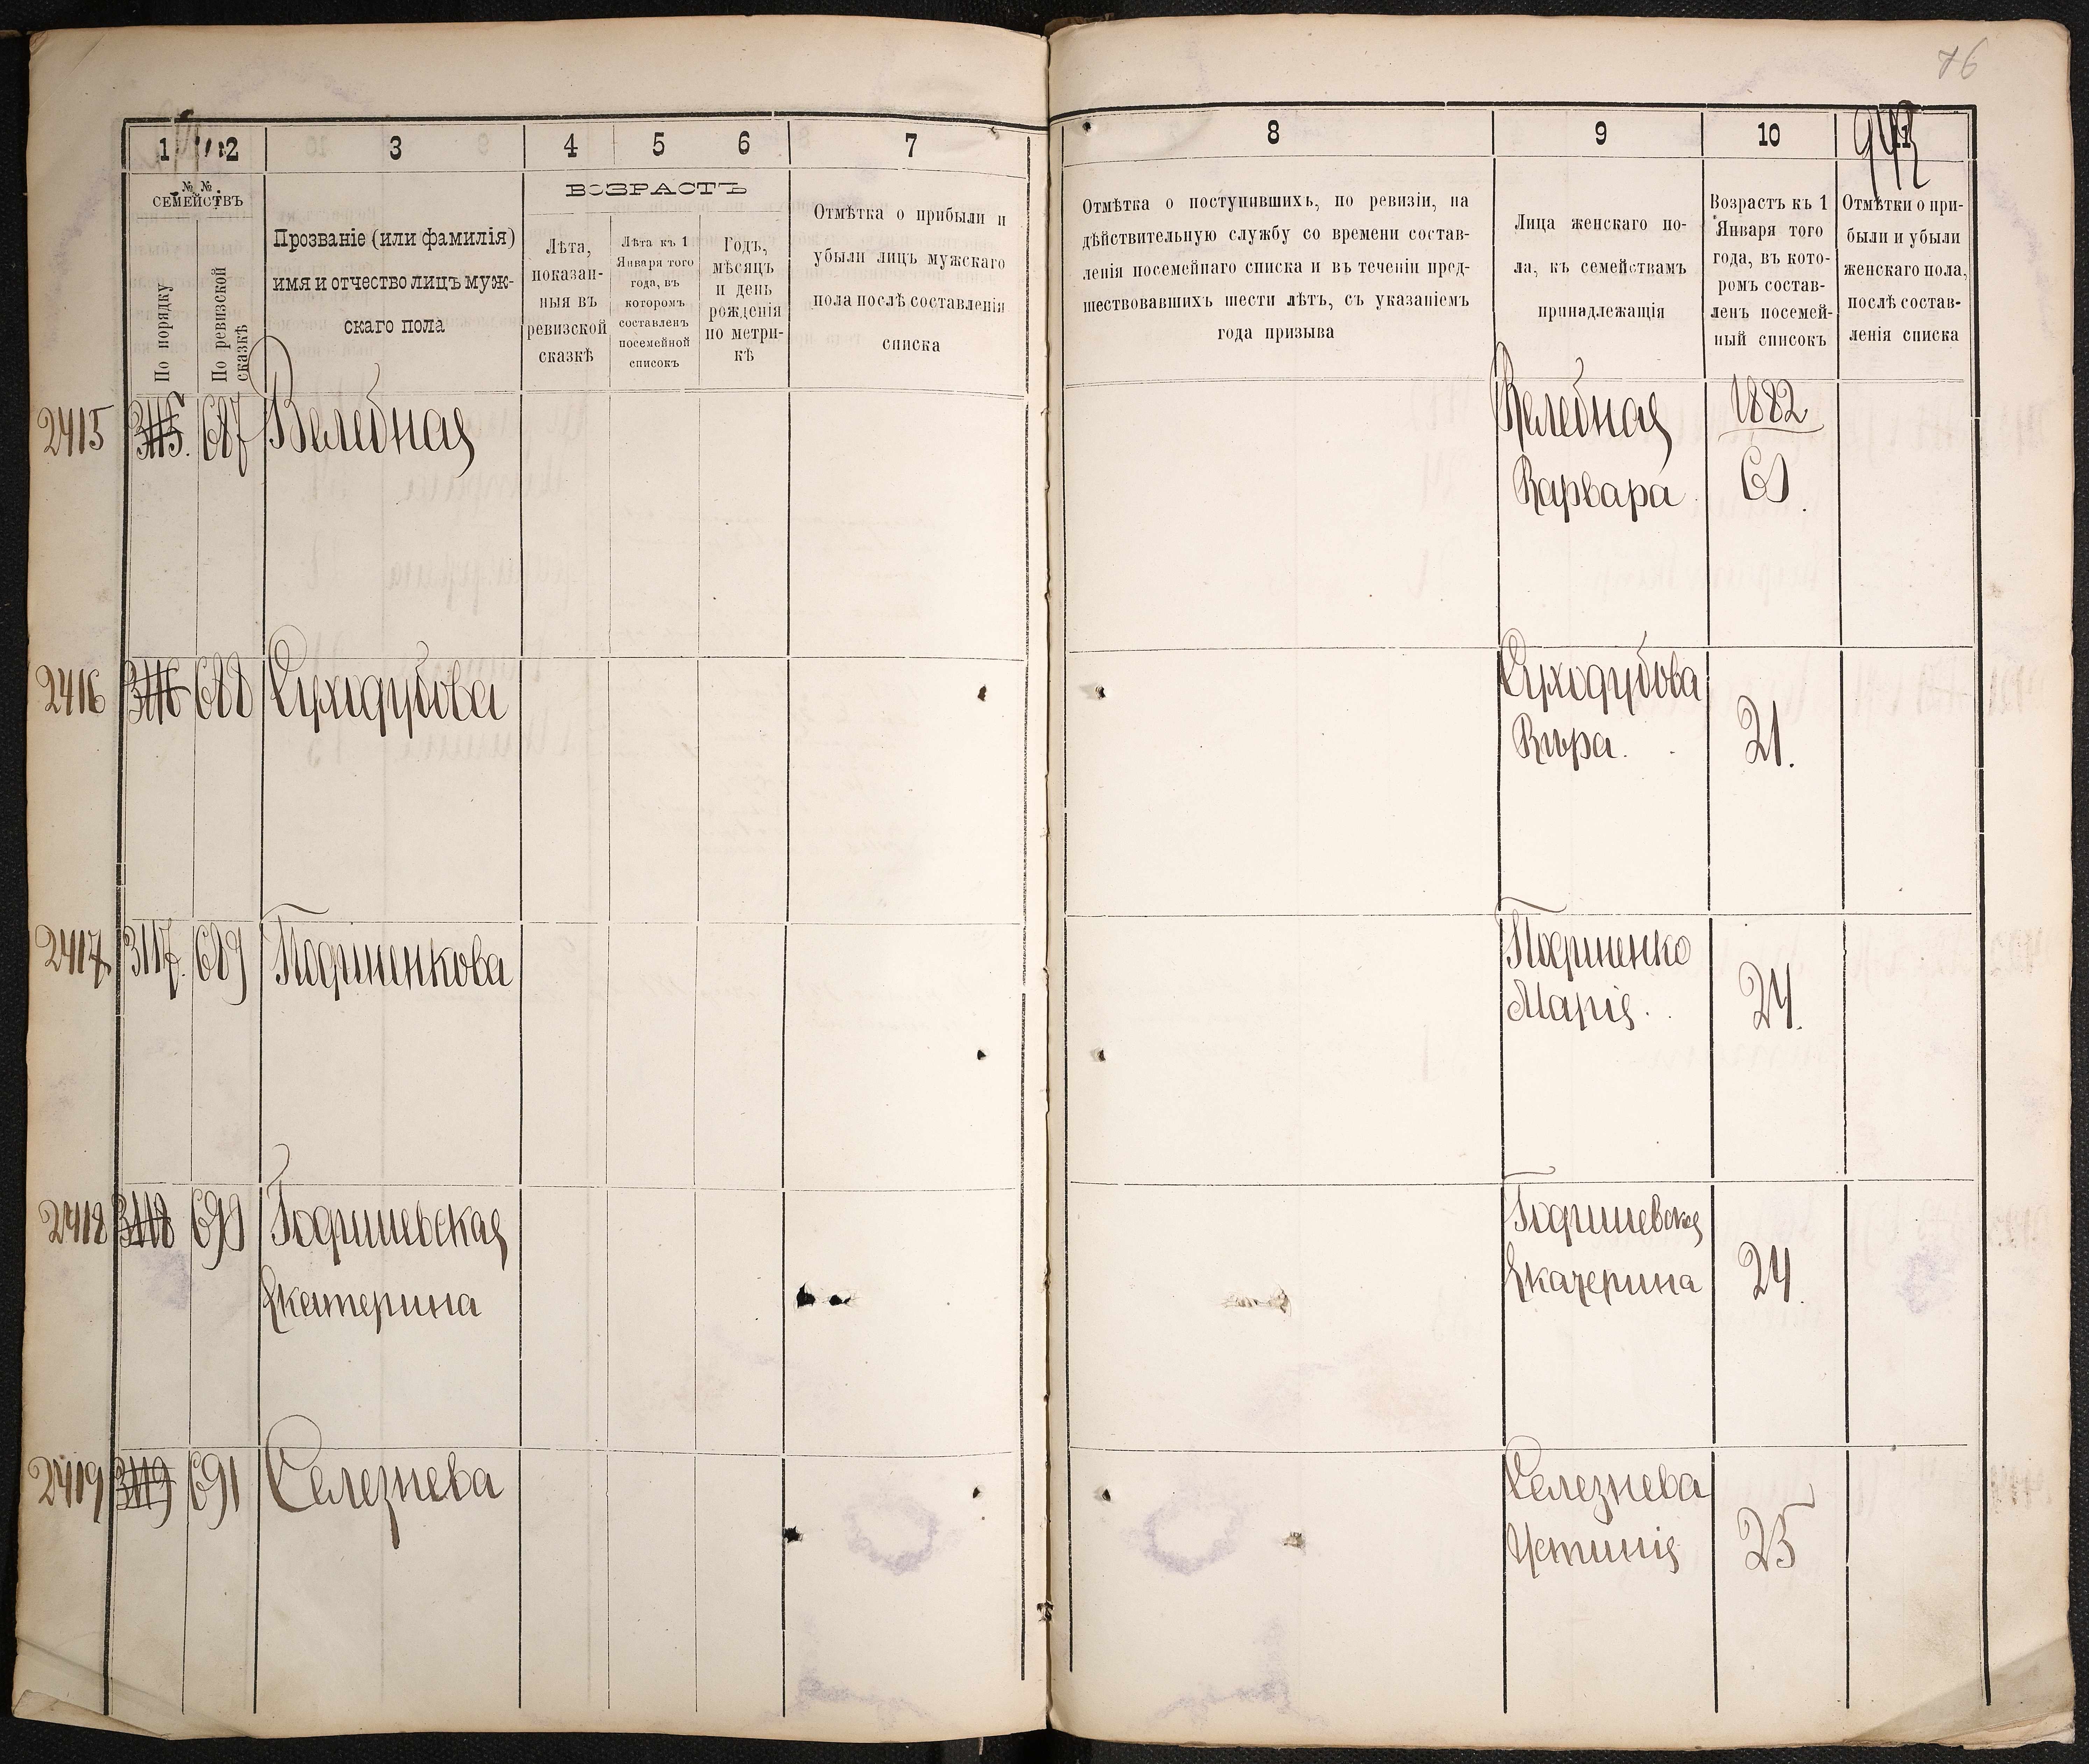 76
943
1 2 3 4 5 6 7
№ № СЕМЕЙСТВЪ
По порядку
По ревизской сказкѣ
Прозваніе (или фамилія)
имя и отчество лицъ муж-
скаго пола
ВОЗРАСТЪ
Лѣта,
показан-
ныя въ
ревизской
сказкѣ
Лѣта къ 1
Января того
года, въ
которомъ
составленъ
посемейной
списокъ
Годъ,
мѣсяцъ
и день
рожденія
по метри-
кѣ
Отмѣтка о прибыли и
убыли лицъ мужскаго
пола послѣ составленія
списка
8 9 10 11
Отмѣтка о поступившихъ, по ревизіи, на
дѣйствительную службу со времени состав-
ленія посемейнаго списка и въ теченіи пред-
шествовавшихъ шести лѣтъ, съ указаніемъ
года призыва
Лица женскаго по-
ла, къ семействамъ
принадлежащія
Возрастъ къ 1
Января того
года, въ кото-
ромъ состав-
ленъ посемей-
ный списокъ
Отмѣтки о при-
были и убыли
женскаго пола,
послѣ состав-
ленія списка
2415 3115. 687 Веледная
Веледная 1882
Варвара 60.
2416 3116 688 Суходубова
Суходубова
Вѣра. 21.
2417 3117. 689 Подчиненкова
Марія. 24.
2418 3118 690 Годшиевская
Екатерина
Годшиевская
Екатерина 24.
2419 3119 691 Селезнева
Селезнева
Устинія 25